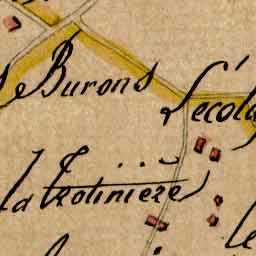 Burons
l'écol
la trotinière
le